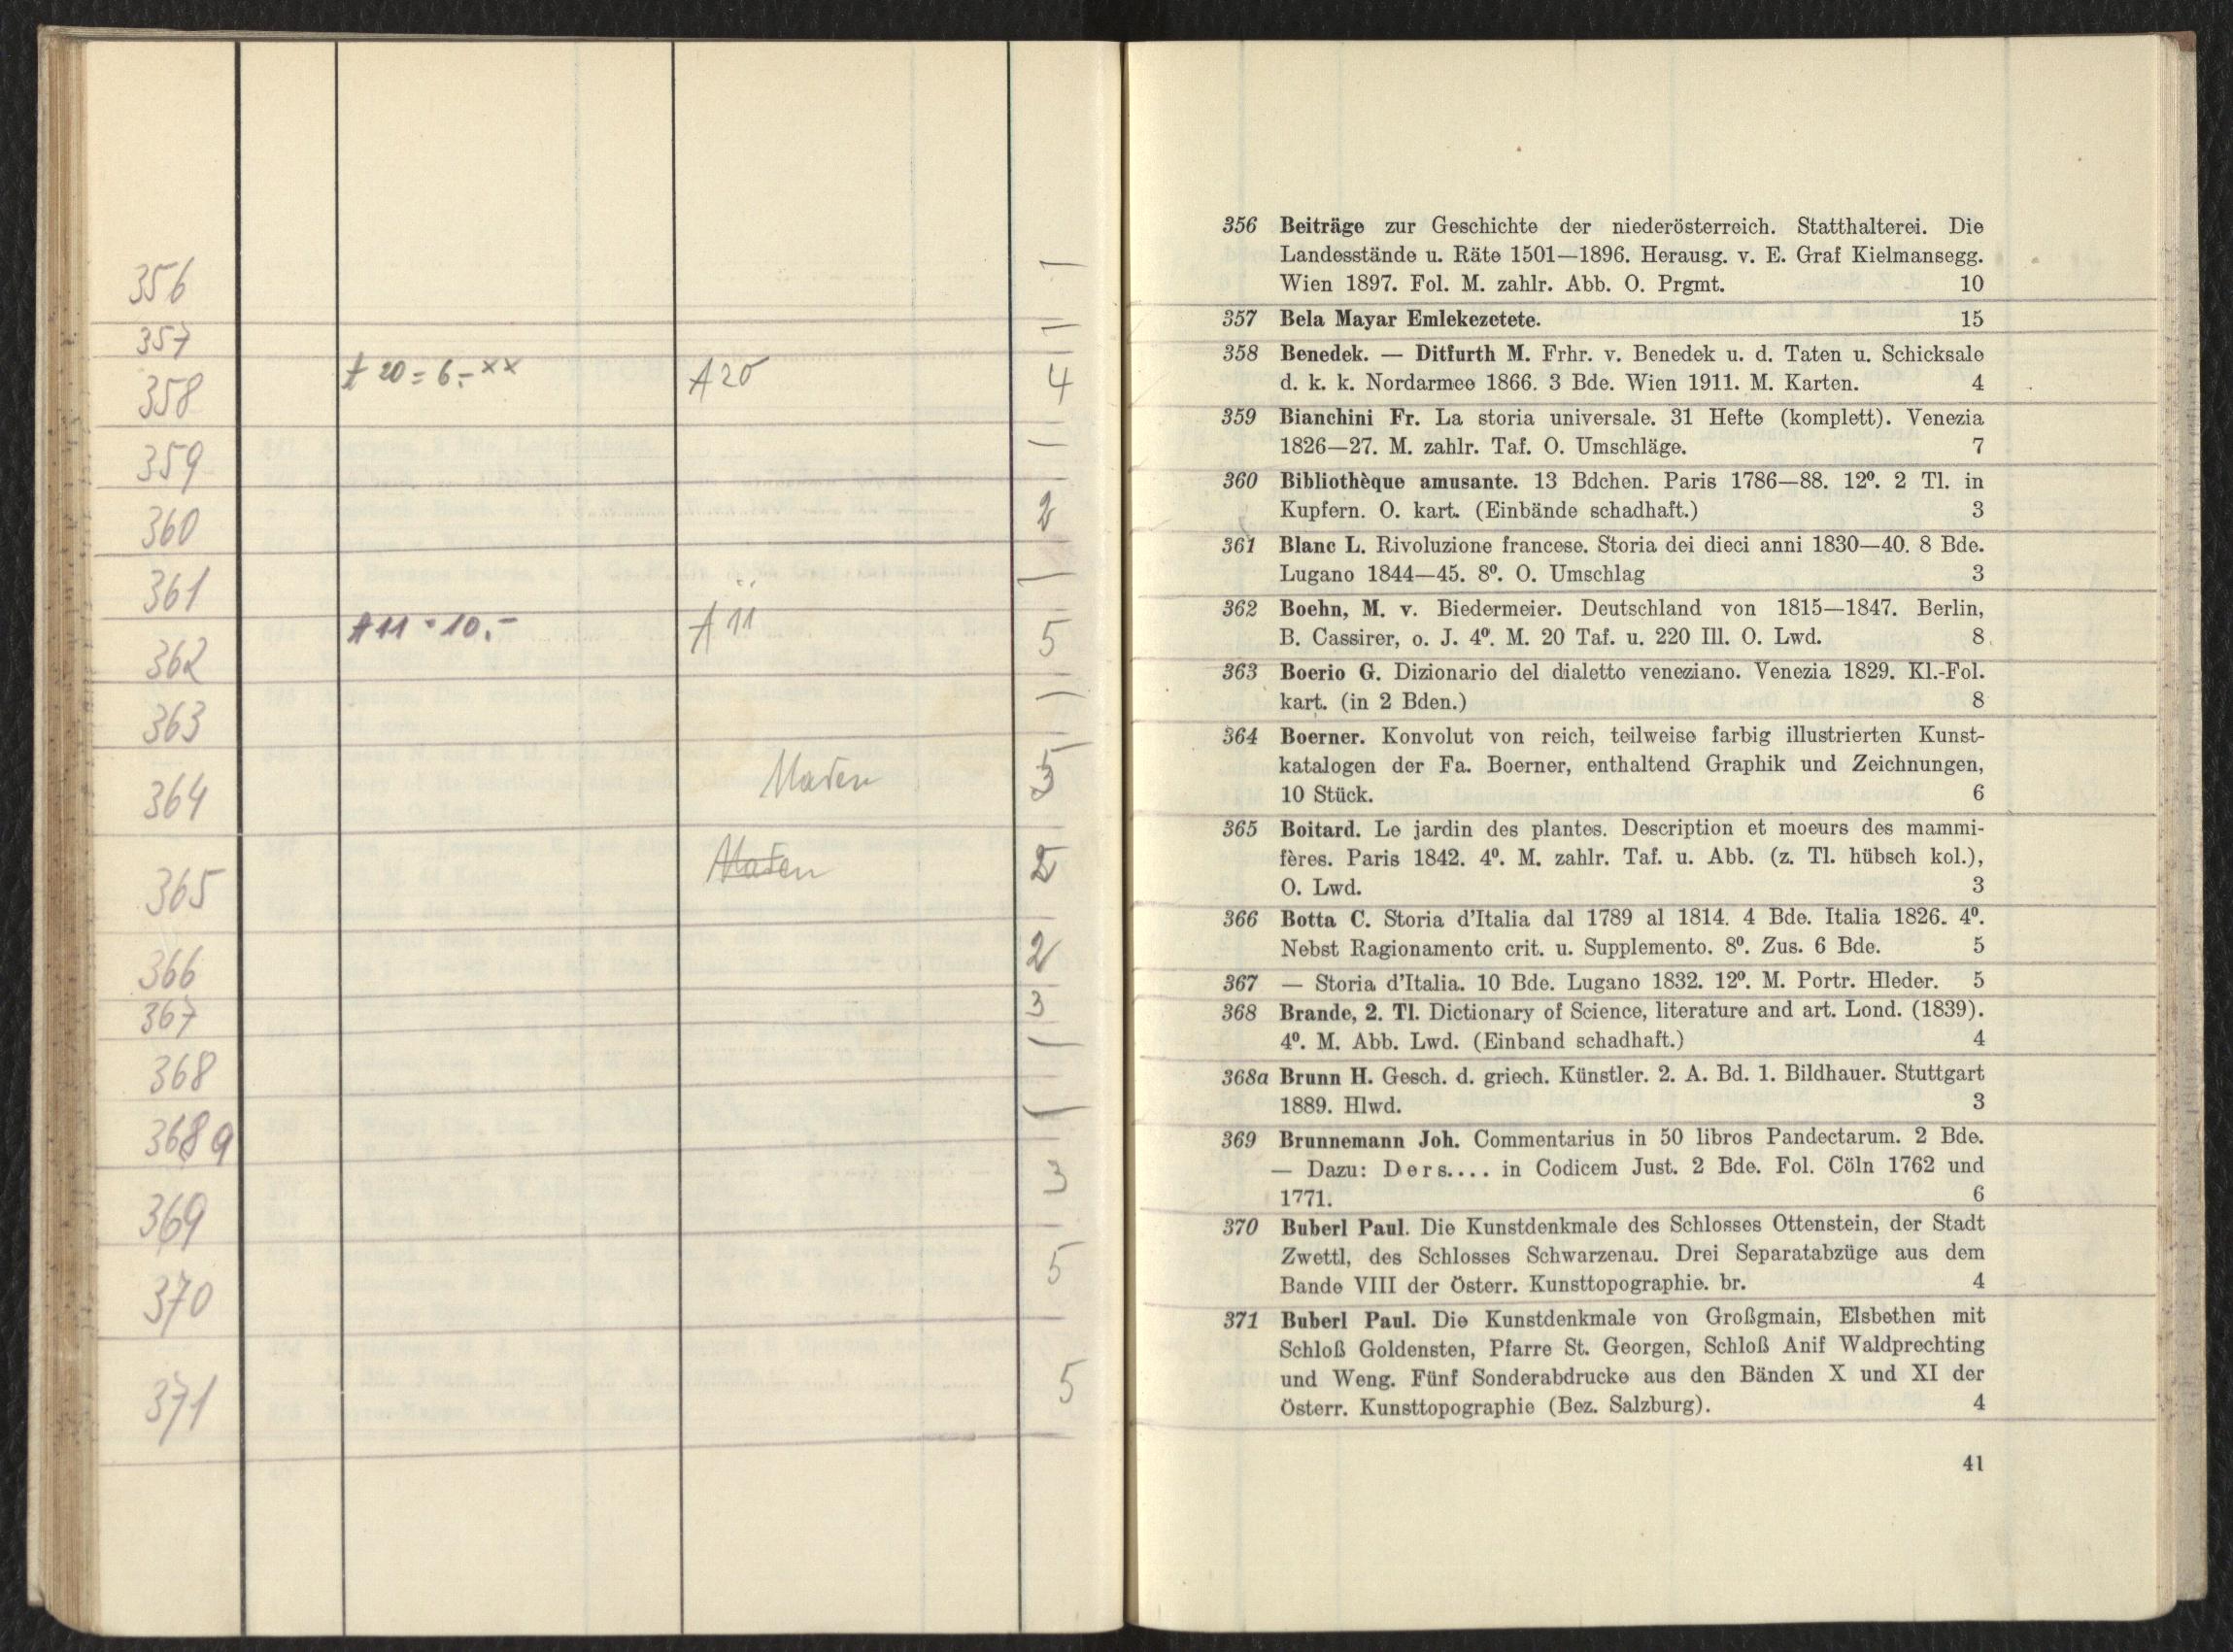 356 —
357 —
358 A 20 = 6.- xx A 20 4
359 —
360 2
361 —
362 A 11 = 10.- A 11 5
363 —
364
365 2
366 2
367 3
368 —
368a —
369 3
370 5
371 5
356 Beiträge zur Geschichte der niederösterreich. Statthalterei. Die
Landesstände u. Räte 1501—1896. Herausg. v. E. Graf Kielmansegg.
Wien 1897. Fol. M. zahlr. Abb. O. Prgmt. 10
357 Bela Mayar Emlekezetete. 15
358 Benedek. — Ditfurth M. Frhr. v. Benedek u. d. Taten u. Schicksale
d. k. k. Nordarmee 1866. 3 Bde. Wien 1911. M. Karten. 4
359 Bianchini Fr. La storia universale. 31 Hefte (komplett). Venezia
1826—27. M. zahlr. Taf. O. Umschläge. 7
360 Bibliothèque amusante. 13 Bdchen. Paris 1786—88. 12⁰. 2 Tl. in
Kupfern. O. kart. (Einbände schadhaft.) 3
361 Blanc L. Rivoluzione francese. Storia dei dieci anni 1830—40. 8 Bde.
Lugano 1844—45. 8⁰. O. Umschlag 3
362 Boehn, M. v. Biedermeier. Deutschland von 1815—1847. Berlin,
B. Cassirer, o. J. 4⁰. M. 20 Taf. u. 220 Ill. O. Lwd. 8
363 Boerio G. Dizionario del dialetto veneziano. Venezia 1829. Kl.-Fol.
kart. (in 2 Bden.) 8
364 Boerner. Konvolut von reich, teilweise farbig illustrierten Kunst-
katalogen der Fa. Boerner, enthaltend Graphik und Zeichnungen,
10 Stück. 6
365 Boitard. Le jardin des plantes. Description et moeurs des mammi-
fères. Paris 1842. 4⁰. M. zahlr. Taf. u. Abb. (z. Tl. hübsch kol.),
O. Lwd. 3
366 Botta C. Storia d'Italia dal 1789 al 1814. 4 Bde. Italia 1826. 4⁰.
Nebst Ragionamento crit. u. Supplemento. 8⁰. Zus. 6 Bde. 5
367 — Storia d'Italia. 10 Bde. Lugano 1832. 12⁰. M. Portr. Hleder. 5
368 Brande, 2. Tl. Dictionary of Science, literature and art. Lond. (1839).
4⁰. M. Abb. Lwd. (Einband schadhaft.) 4
368a Brunn H. Gesch. d. griech. Künstler. 2. A. Bd. 1. Bildhauer. Stuttgart
1889. Hlwd. 3
369 Brunnemann Joh. Commentarius in 50 libros Pandectarum. 2 Bde.
— Dazu: Ders.... in Codicem Just. 2 Bde. Fol. Cöln 1762 und
1771. 6
370 Buberl Paul. Die Kunstdenkmale des Schlosses Ottenstein, der Stadt
Zwettl, des Schlosses Schwarzenau. Drei Separatabzüge aus dem
Bande VIII der Österr. Kunsttopographie. br. 4
371 Buberl Paul. Die Kunstdenkmale von Großgmain, Elsbethen mit
Schloß Goldensten, Pfarre St. Georgen, Schloß Anif Waldprechting
und Weng. Fünf Sonderabdrucke aus den Bänden X und XI der
Österr. Kunsttopographie (Bez. Salzburg). 4
41